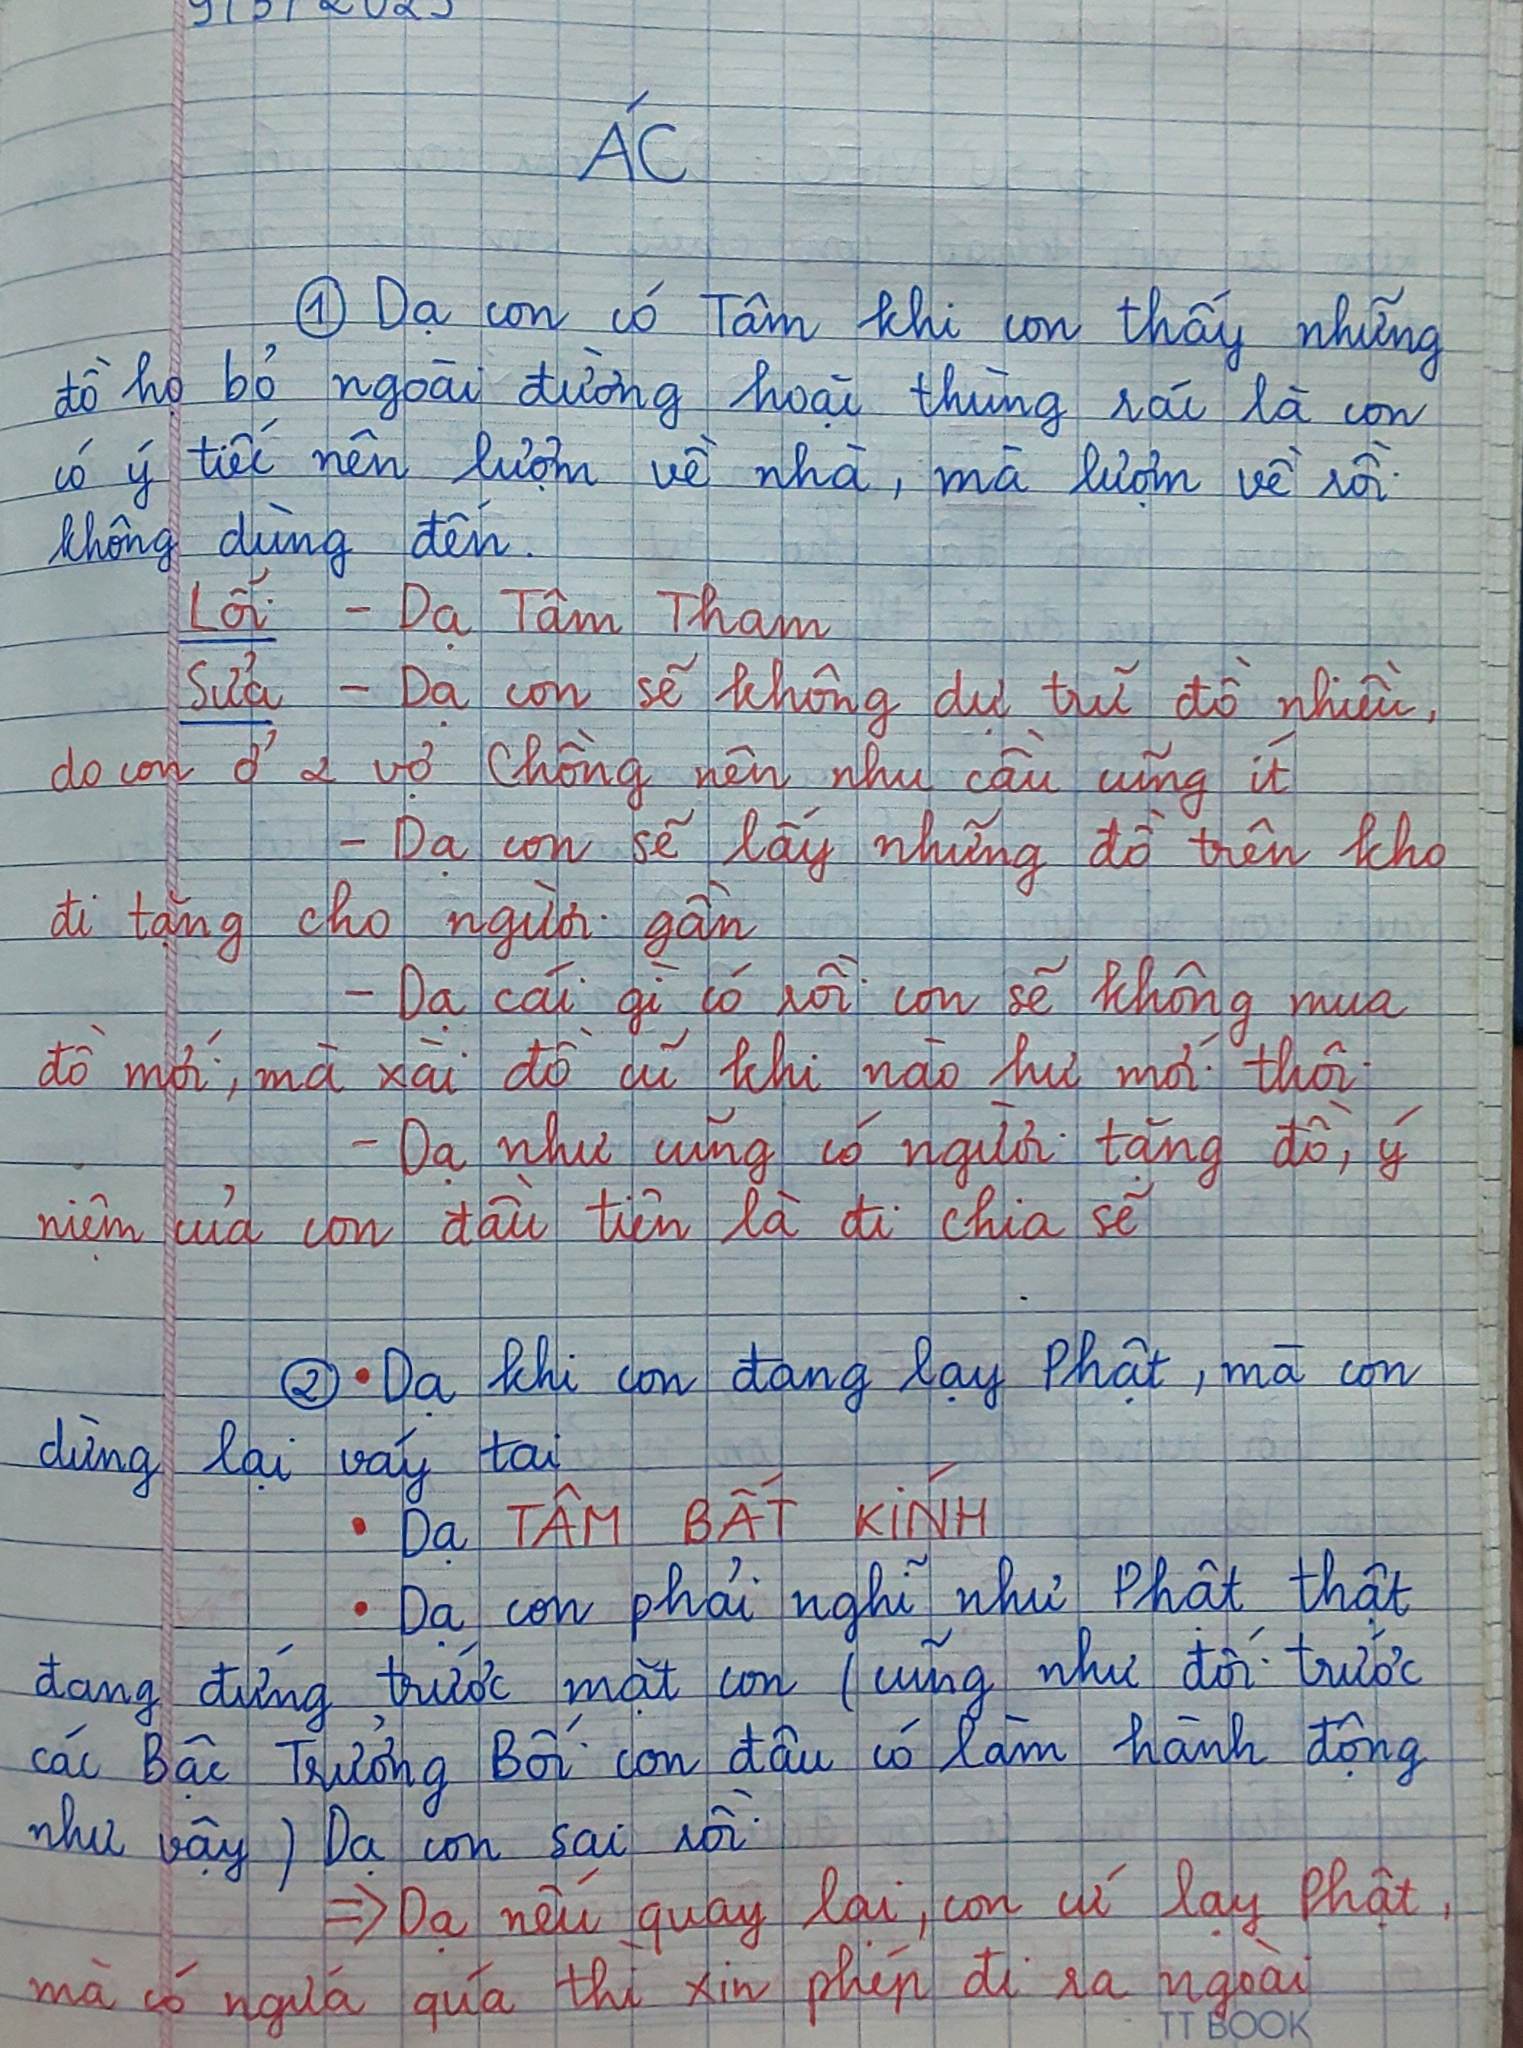 9/5/2025
ÁC
① Dạ con có Tâm khi con thấy những
đồ họ bỏ ngoài đường hoặi thùng rác là con
có ý tiếc nên lượm về nhà, mà lượm về rồi
không dùng đến.
Lỗi - Dạ Tâm Tham
Sửa - Dạ con sẽ không dự trữ đồ nhiều,
do con ở 2 vợ Chồng nên nhu cầu cũng ít
- Dạ con sẽ lấy những đồ trên kho
đi tặng cho người gần
- Dạ cái gì có rồi con sẽ không mua
đồ mới, mà xài đồ cũ khi nào hư mới thôi
- Dạ như cũng có người tặng đồ, ý
niệm của con đầu tiên là đi chia sẽ
② • Dạ khi con đang lạy Phật, mà con
dừng lại váy tai
• Dạ TÂM BẤT KÍNH
• Dạ con phải nghĩ như Phật thật
đang đứng trước mặt con (cũng như đối trước
các Bậc Trưởng Bối con đâu có làm hành động
như vậy) Dạ con sai rồi
=> Dạ nếu quay lại, con cứ lạy Phật,
mà có ngứá quá thì xin phép đi ra ngoài
TT BOOK